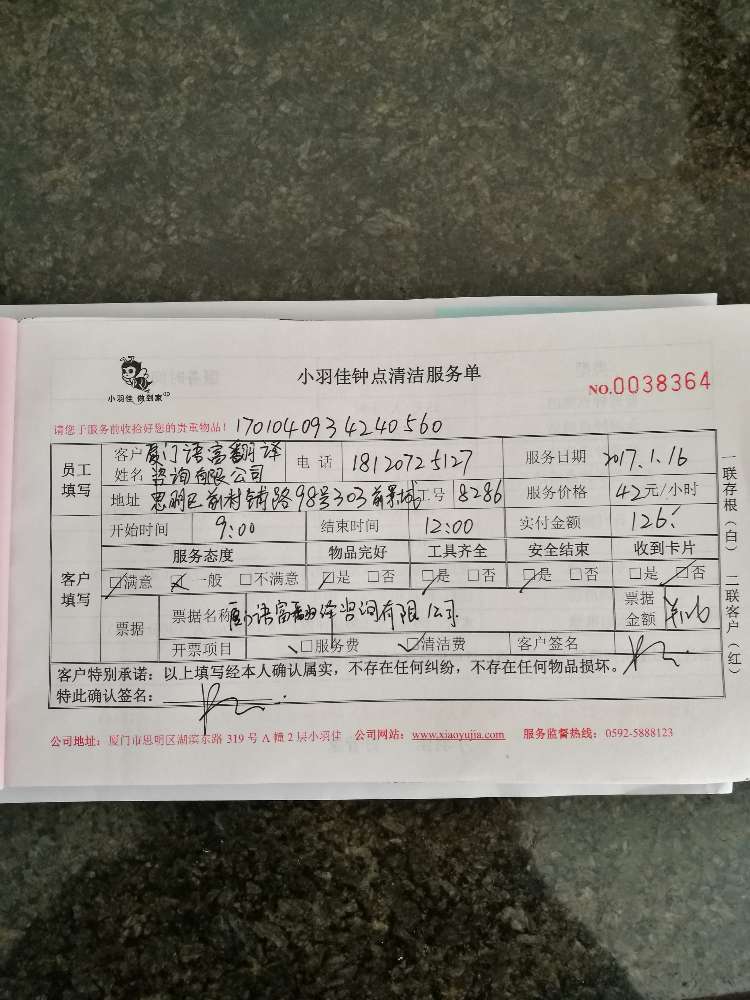 小羽佳 做到家
小羽佳钟点清洁服务单
NO.0038364
请您于服务前收拾好您的贵重物品！ 1701040934240560
员工填写 客户姓名 厦门语富翻译咨询有限公司 电话 18120725127 服务日期 2017.1.16
地址 思明区前村铺路98号303前果城 工号 8286 服务价格 42元/小时
客户填写 开始时间 9:00 结束时间 12:00 实付金额 126.
服务态度 物品完好 工具齐全 安全结束 收到卡片
□满意 □一般 □不满意 □是 □否 □是 □否 □是 □否 □是 □否
票据 票据名称 厦门语富翻译咨询有限公司 票据金额
开票项目 □服务费 □清洁费 客户签名
客户特别承诺：以上填写经本人确认属实，不存在任何纠纷，不存在任何物品损坏。
特此确认签名：
一联存根（白） 二联客户（红）
公司地址：厦门市思明区湖滨东路 319 号 A 幢 2 层小羽佳 公司网站：www.xiaoyujia.com 服务监督热线：0592-5888123